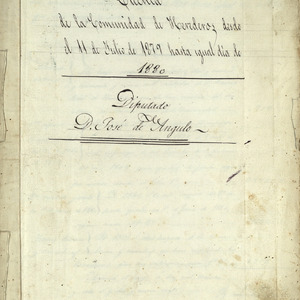 Cuenta
de la Comunidad de Herederos desde
el 11 de Julio de 1879 hasta igual día de
1880
Diputado
D. José de Angulo